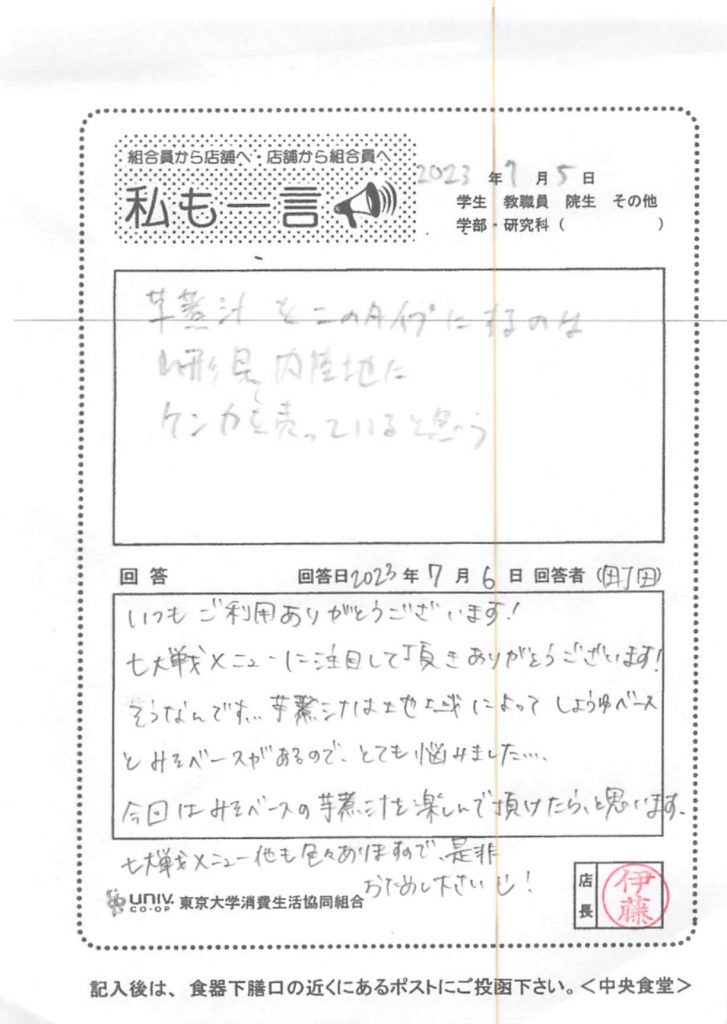 組合員から店舗へ・店舗から組合員へ
私も一言
2023年7月5日
学生 教職員 院生 その他
学部・研究科( )
芋煮汁をこのタイプにするのは
山形県内陸地に
ケンカを売っていると思う
回答 回答日2023年7月6日 回答者(町田)
いつもご利用ありがとうございます!
七大戦メニューに注目して頂きありがとうございます!
そうなんです… 芋煮汁は地域によってしょうゆベース
とみそベースがあるので、とても悩みました…。
今回はみそベースの芋煮汁を楽しんで頂けたら、と思います。
七大戦メニュー他も色々ありますので、是非
おためし下さい!
UNIV. CO-OP 東京大学消費生活協同組合
店長 伊藤
記入後は、食器下膳口の近くにあるポストにご投函下さい。<中央食堂>